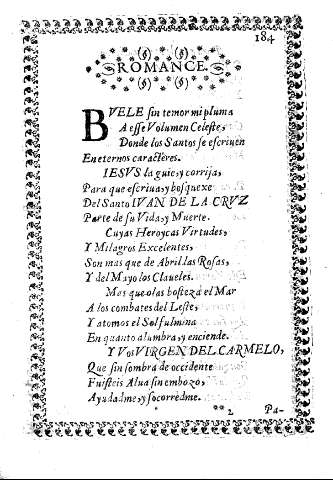 184
ROMANCE.
BVELE sin temor mi pluma
A esse Volumen Celeste,
Donde los Santos se escriuen
En eternos caractères.
IESVS la guie, y corrija,
Para que escriua, y bosquexe
Del Santo IVAN DE LA CRVZ
Parte de su Vida, y Muerte.
Cuyas Heroycas Virtudes,
Y Milagros Excelentes,
Son mas que de Abril las Rosas,
Y del Mayo los Claueles.
Mas que olas bosteza el Mar
A los combates del Leste,
Y atomos el Sol fulmina
En quanto alumbra, y enciende.
Y Vos VIRGEN DEL CARMELO,
Que sin sombra de occidente
Fuisteis Alua sin embozo,
Ayudadme, y socorredme.
**2 Pa-